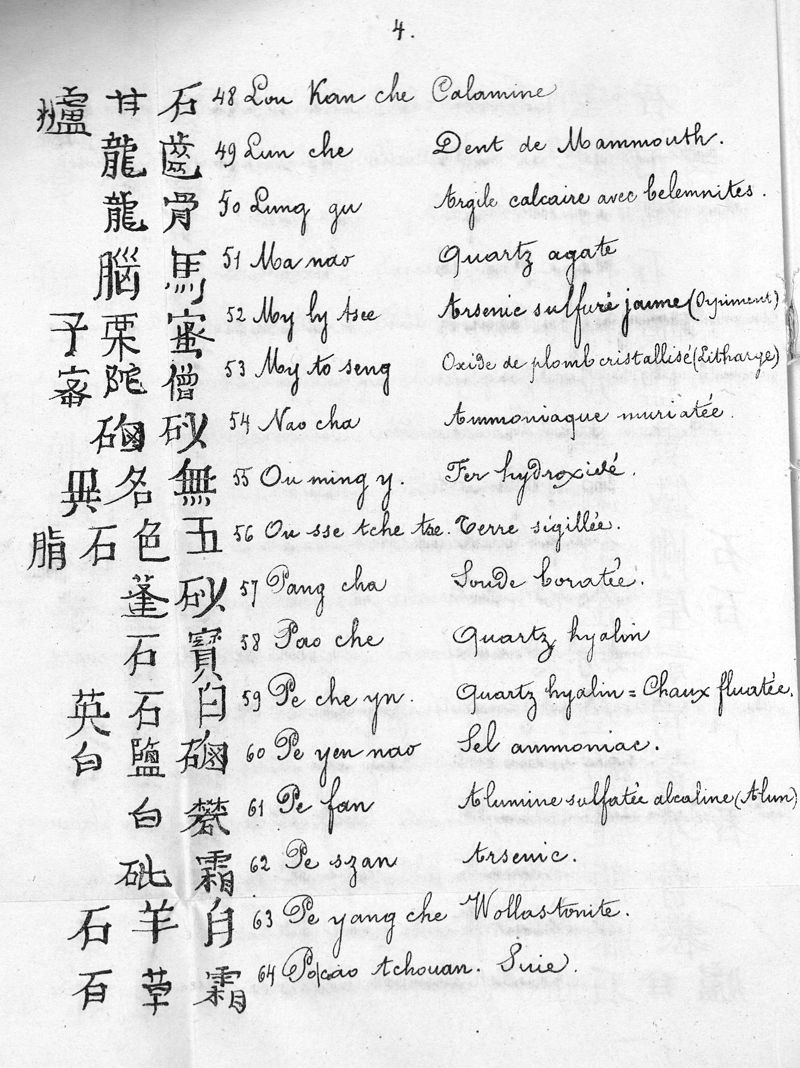 4.
爐 甘 石 48 Lou Kan che Calamine
龍 齒 49 Lun che Dent de Mammouth.
龍 骨 50 Lung gu Argile calcaire avec belemnites.
腦 馬 51 Ma nao Quartz agate
子 栗 蜜 52 My ly tsee Arsenic sulfuré jaume (Orpiment)
密 陀 僧 53 My to seng Oxide de plomb cristallisé (Litharge)
硇 砂 54 Nao cha Ammoniaque muriatée.
異 名 無 55 Ou ming y. Fer hydroxidé.
脂 石 色 五 56 Ou sse tche tze. Terre sigillée.
蓬 砂 57 Pang cha Soude boratée.
石 寶 58 Pao che Quartz hyalin
英 石 白 59 Pe che yn. Quartz hyalin = Chaux fluatée.
白 鹽 硇 60 Pe yen nao Sel ammoniac.
白 礬 61 Pe fan Alumine sulfatée alcaline (Alun)
砒 霜 62 Pe szan Arsenic.
石 羊 白 63 Pe yang che Wollastonite.
百 草 霜 64 tchouan. Suie.